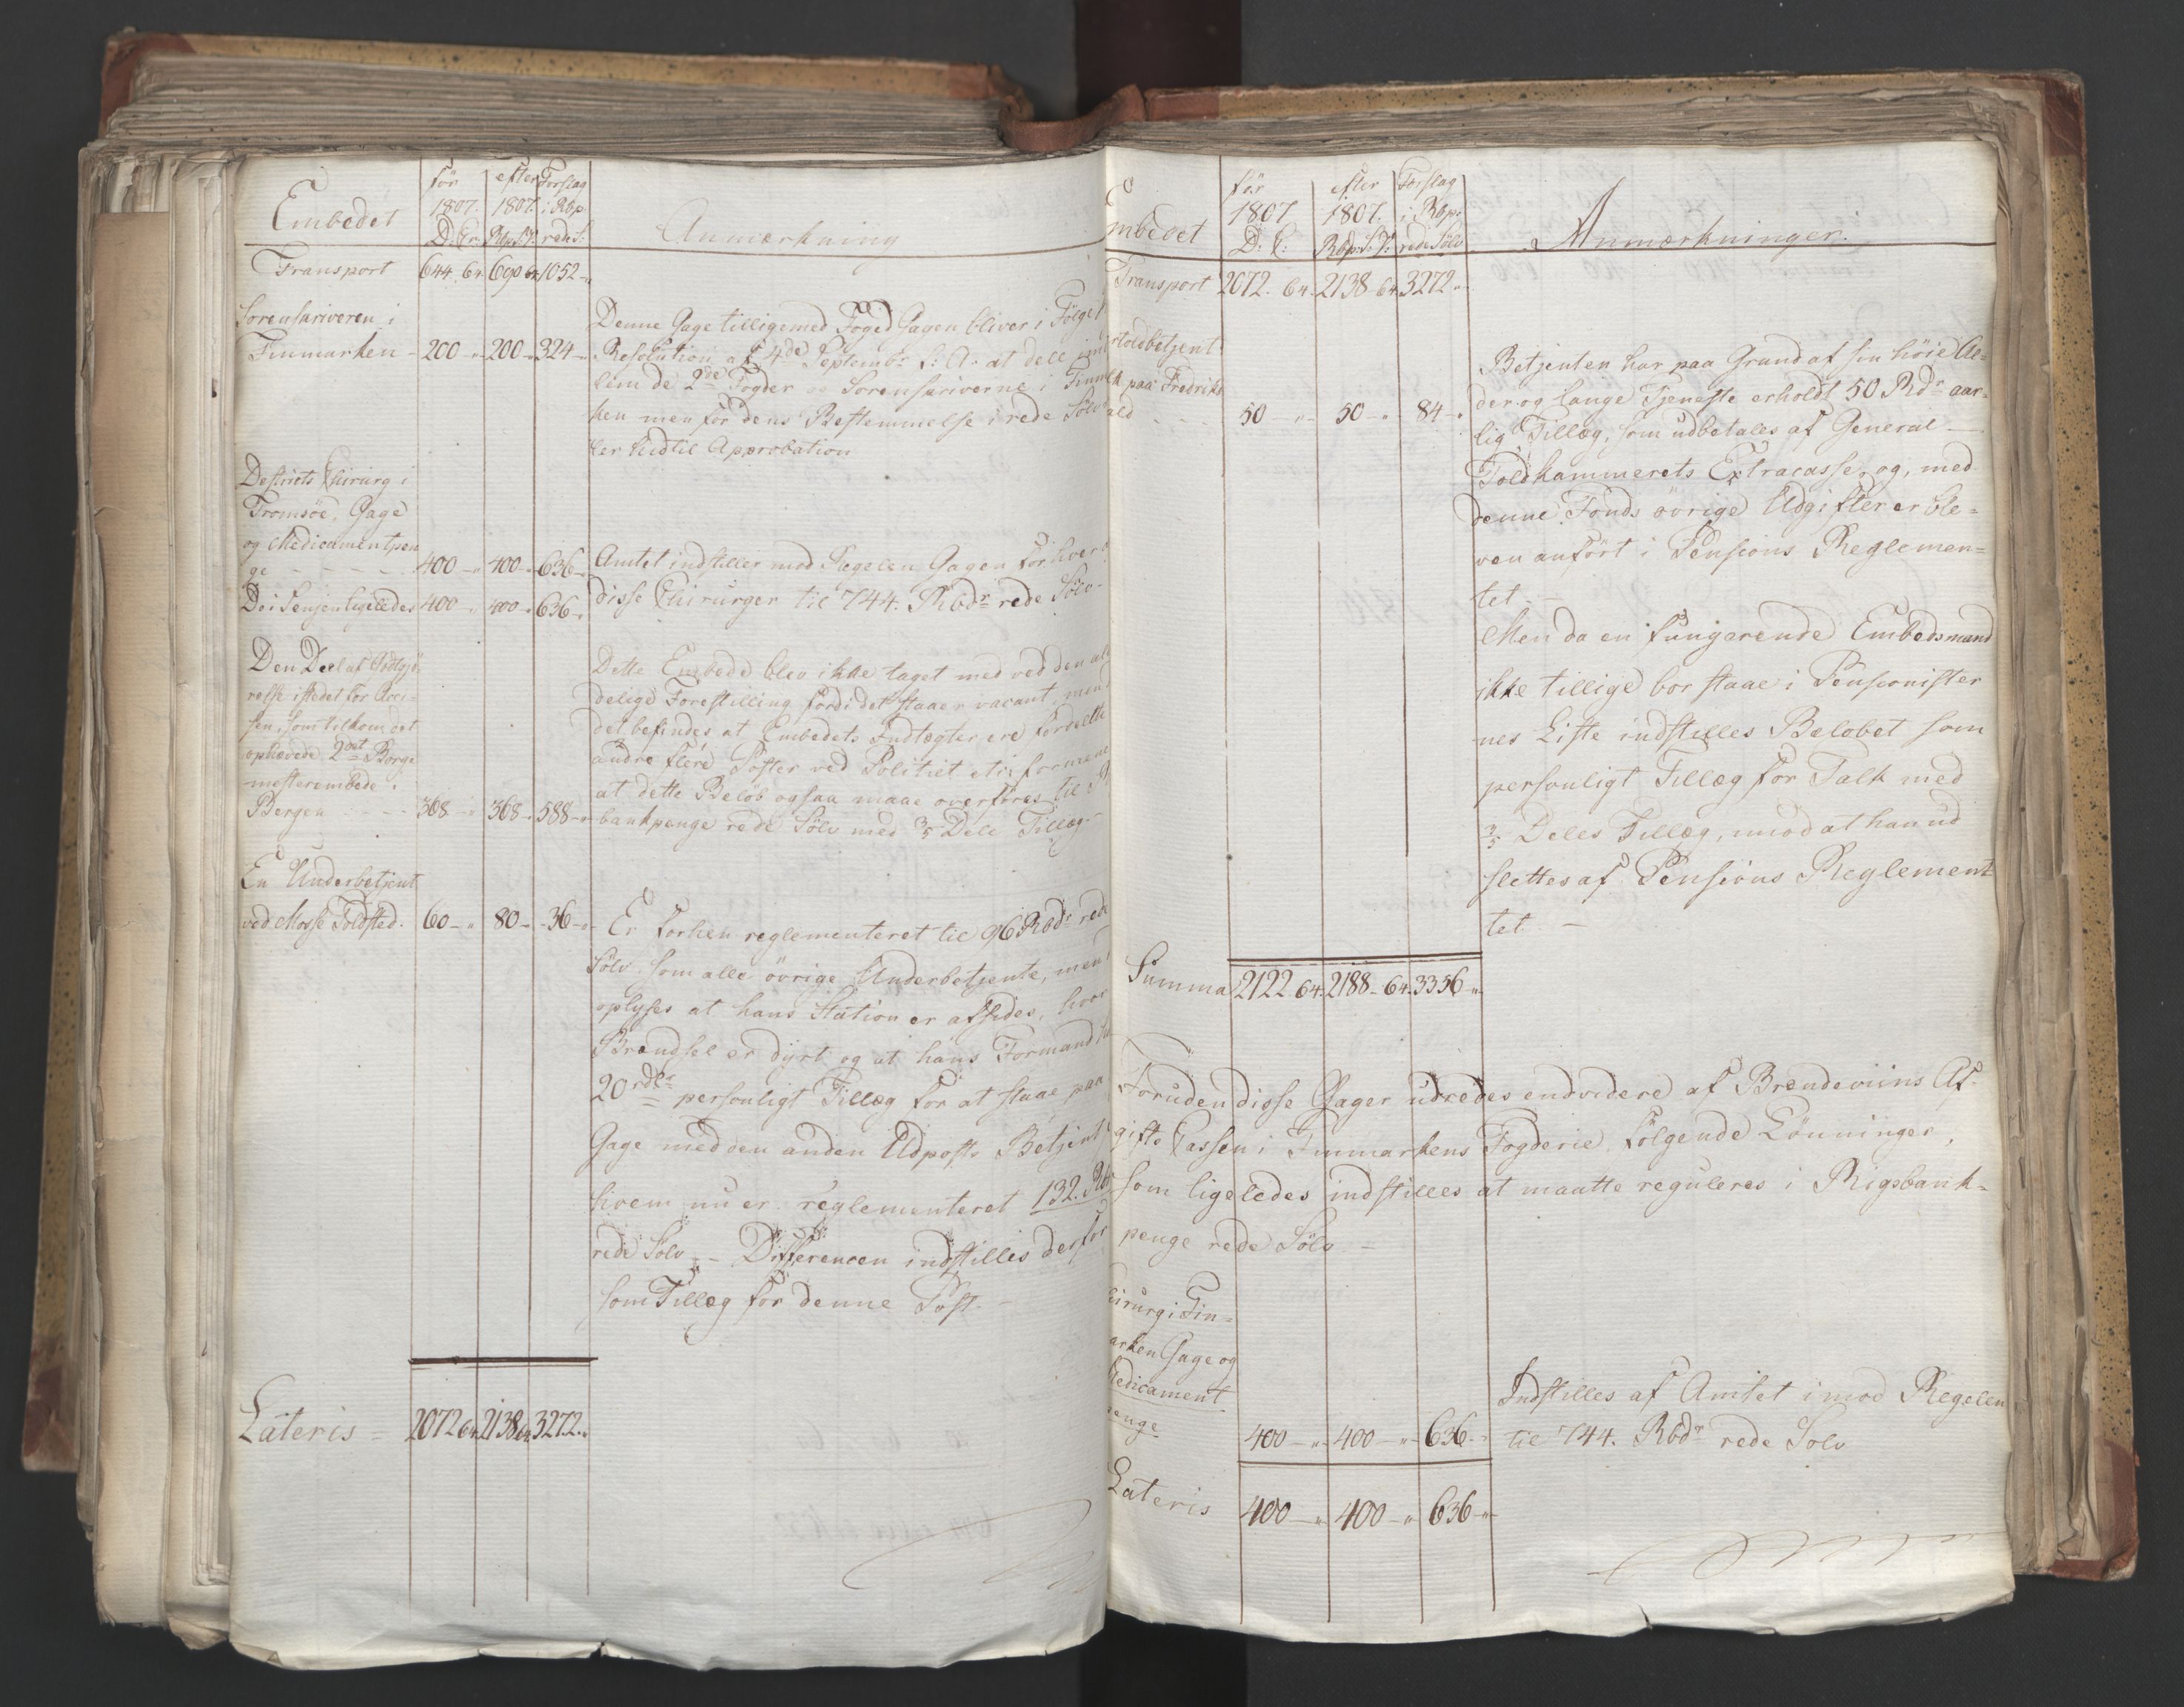 Embedet
för
1807.
D. Cr:
efter
1807.
Rbp. S. V.
Forslag
i Rbp.
rede S.
Anmærkning
Transport 644. 64. 690 64. 1052 -„
Sorenskriveren i
Finmarken - 200 -„- 200 -„ 324 -„
Denne Gage tilligemed Foged Gagen bliver i Følge
Resolution af 4de Septembr f: A: at dele
lem de 2de Fogder og Sorenskriverne i Finmar
ken men for dens Bestemmelse i rede Sölv
ler hidtil Approbation
Destricts Chirurg i
Tromsöe, Gage
og Medicamentpen
ge - - - - 400 -„ 400 -„ 636 -„
Amtet indstiller mod Regelen Gagen for hver
Do i Senjen ligeledes 400 -„ 400 -„ 636 -„
disse Chirurger til 744. Rbdr rede Sölv -
Den Deel af Godtgjö-
relse istedet for Acci-
sen, som tilkom det
ophevede 2det Borge
mesterembede i
Bergen - - - - 368 -„ 368 -„ 588 -„
Dette Embede blev ikke taget med ved den al
delige Forestilling fordi det staaer vacant, men
det befindes at Embedets Indtægter ere fordeelte
andre flere Poster ved Politiet etc; formene
at dette Belöb ogsaa maae overföres til R
bankpenge rede Sölv med 3/5 Dele Tillæg. -
En Underbetjent
ved Mosse Toldsted. 60 -„ 80 -„ - 36 -„
Er forhen reglementeret til 96 Rbdr rede
Sölv som alle övrige Underbetjente, men
oplyses at hans Station er afsides, hvor
Brændsel er dyrt og at hans Formand
20 rdlr personligt Tillæg for at staae paa
Gage med den anden Udposts Betjent
hvem nu er reglementeret 132. Rb
rede Sölv. - Differencen indstilles derfor
som Tillæg for denne Post. -
Lateris = 2072 64. 2138 64. 3272 -„
mbedet
för
1807
D. C:
efter
1807.
Rbp. S. V:
Forslag
i Rbp.
rede Sölv
Anmærkninger.
Transport 2072. 64. 2138 64. 3272 „
rtoldbetjent
lk paa Fredriks
ald - - - 50 -„- 50 -„ 84 -„
Betjenten har paa Grund af sin höie Al-
der og lange Tjeneste erholdt 50 Rdr aar-
lig Tillæg, som udbetales af General -
Toldkammerets Extracasse, og, med
denne Fonds övrige Udgifter er ble-
ven anfört i Pensions Reglemen-
tet. -
Men da en fungerende Embedsmand
ikke tillige bor staae i Pensionister
nes Liste indstilles Belöbet som
personligt Tillæg for Falk med
3/5 Deles Tillæg, imod at han ud
slettes af Pensions Reglement
tet -
Summa 2122. 64. 2188 - 64. 3356 -„
Foruden disse Gager udredes endvidere af Brændeviins Af-
gifts Cassen i Finmarkens Fogderie fölgende Lönninger,
som ligeledes indstilles at maatte reguleres i Rigsbank-
penge rede Sölv -
hirurg i Fin-
arken Gage og
Medicament
penge 400 -„- 400 -„- 636 -„
Indstilles af Amtet imod Regelen
til 744. Rbdr rede Sölv
Lateris 400 -„- 400 -„- 636 -„